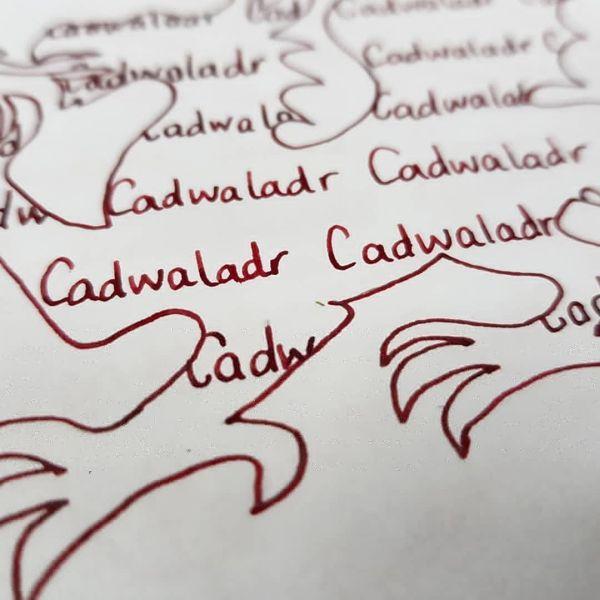 Cadwaladr Cad Cadwaladr
Cadwaladr Cadwaladr C
Cadwala Cadwaladr
dw Cadwaladr Cadwaladr
Cadwaladr Cadwaladr
Cadw Cad